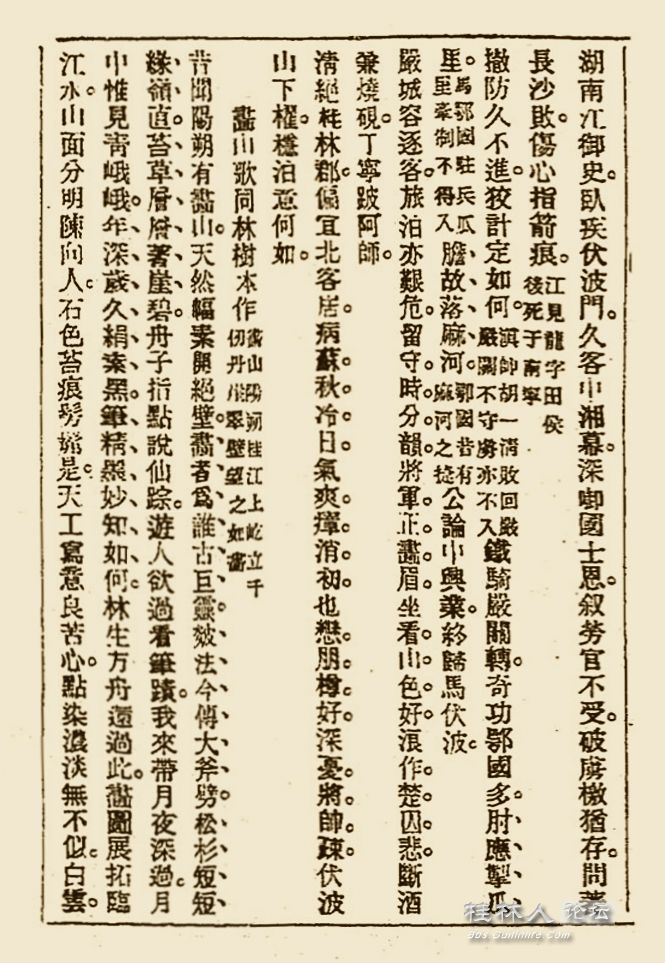 湖南江御史。臥疾伏波門。久客中湘幕。深啣國士恩。叙勞官不受。破虜檄猶存。問著
長沙敗。傷心指箭痕。江見龍字田侯後死于南寧
撤防久不進。狡計定如何。滇帥胡一清敗回嚴嚴關不守虜亦不入鐵騎嚴關轉。奇功鄂國多。肘應掣瓜
里。馬鄂國駐兵瓜里牽制不得入膽故落麻河。鄂國昔有麻河之捷公論中興業。終歸馬伏波。
嚴城容逐客。旅泊亦艱危。留守時分韻。將軍正畫眉。坐看山色好。浪作楚囚悲。斷酒
兼燒硯。丁寧跛阿師。
清絕桂林郡。偏宜北客居。病蘇秋冷日。氣爽瘴消初。也戀朋樽好。深憂將帥疎。伏波
山下櫂。穩泊意何如。
畫山歌同林樹本作畫山陽朔桂江上屹立千仞丹崖翠壁望之如畫
昔聞陽朔有畫山、天然幅素開絕壁。畫者為誰古巨靈、皴法今傳大斧劈。松杉短短
緣嶺直、苔草層層著崖碧。舟子指點說仙踪。遊人欲過看筆蹟。我來帶月夜深過。月
中惟見青峨峨。年深歲久絹素黑。筆精墨妙知如何。林生方舟還過此。畫圖展拓臨
江水。山面分明陳向人。石色苔痕髣髴是。天工寫意良苦心。點染濃淡無不似。白雲
桂林人 论坛
bbs.guilinlife.com